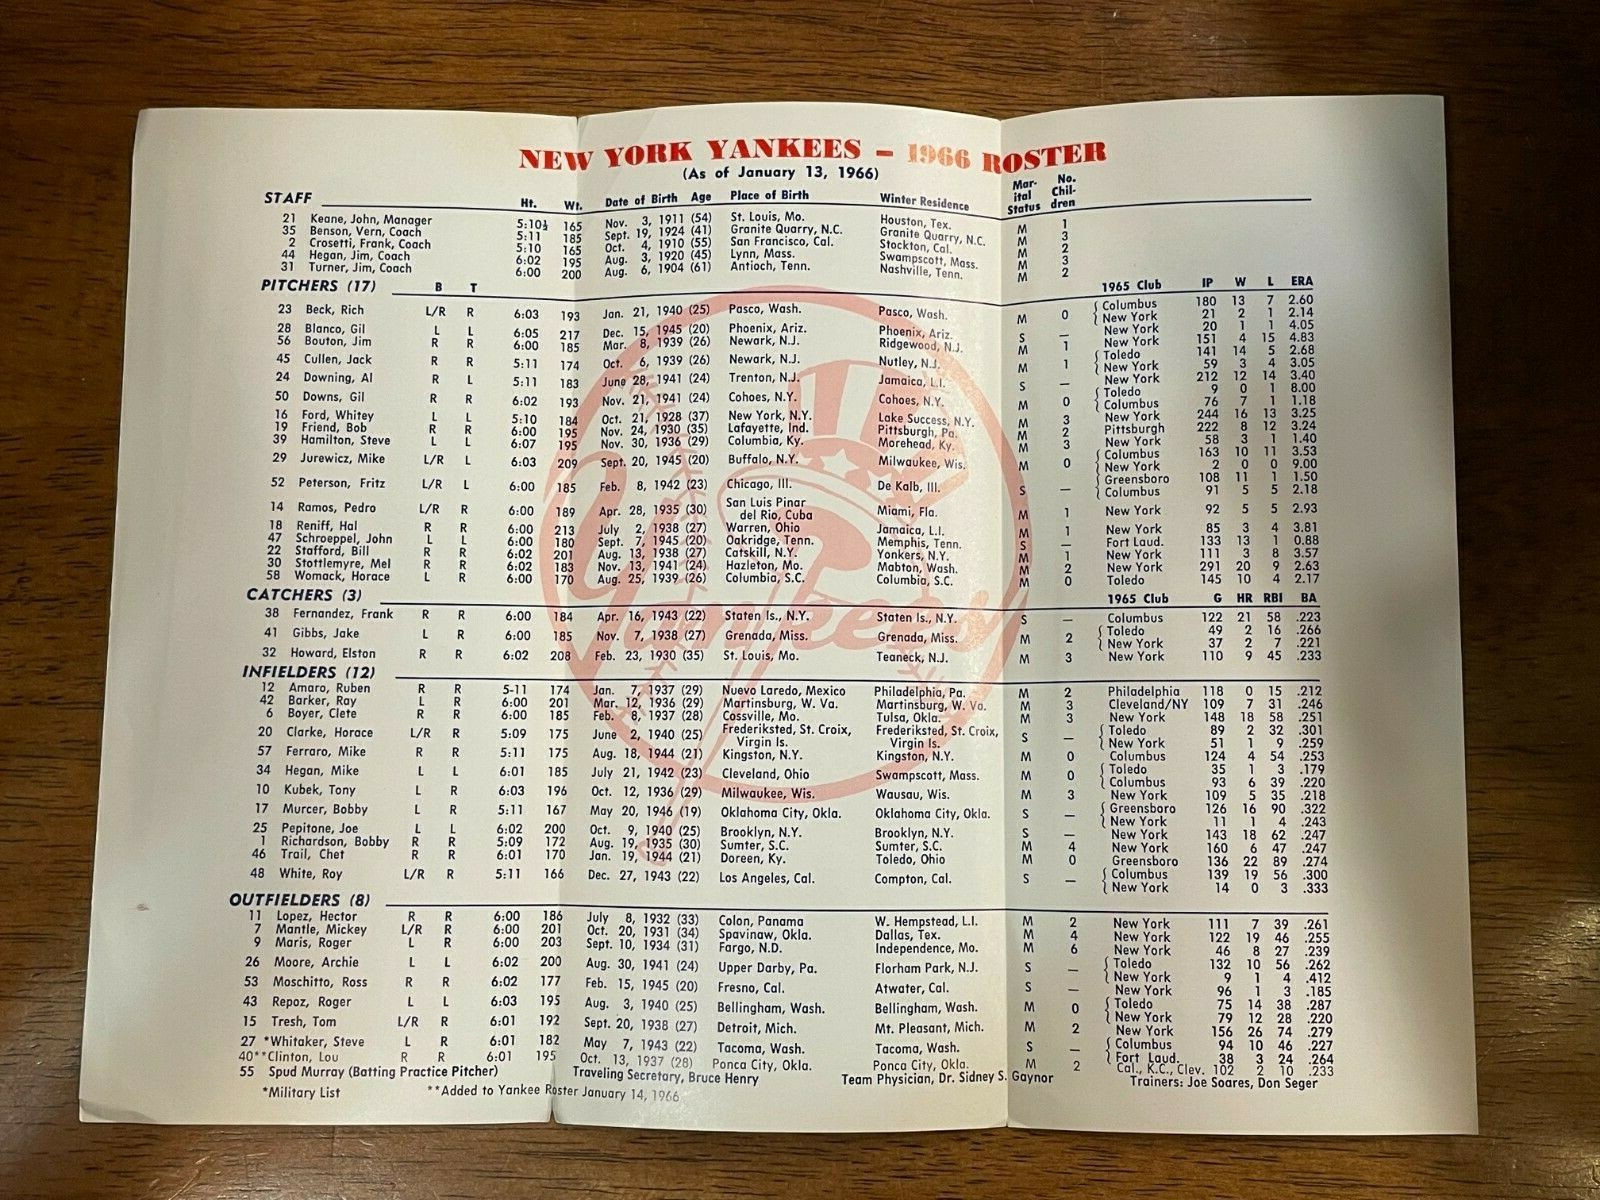 NEW YORK YANKEES – 1966 ROSTER
(As of January 13, 1966)
STAFF Ht. Wt. Date of Birth Age Place of Birth Winter Residence Mar- ital Status No. Chil- dren
21 Keane, John, Manager 5:10½ 165 Nov. 3, 1911 (54) St. Louis, Mo. Houston, Tex. M 1
35 Benson, Vern, Coach 5:11 185 Sept. 19, 1924 (41) Granite Quarry, N.C. Granite Quarry, N.C. M 3
2 Crosetti, Frank, Coach 5:10 165 Oct. 4, 1910 (55) San Francisco, Cal. Stockton, Cal. M 2
44 Hegan, Jim, Coach 6:02 195 Aug. 3, 1920 (45) Lynn, Mass. Swampscott, Mass. M 3
31 Turner, Jim, Coach 6:00 200 Aug. 6, 1904 (61) Antioch, Tenn. Nashville, Tenn. M 2
PITCHERS (17) B T 1965 Club IP W L ERA
23 Beck, Rich L/R R 6:03 193 Jan. 21, 1940 (25) Pasco, Wash. Pasco, Wash. M 0 { Columbus 180 13 7 2.60
{ New York 21 2 1 2.14
28 Blanco, Gil L L 6:05 217 Dec. 15, 1945 (20) Phoenix, Ariz. Phoenix, Ariz. S — New York 20 1 1 4.05
56 Bouton, Jim R R 6:00 185 Mar. 8, 1939 (26) Newark, N.J. Ridgewood, N.J. M 1 New York 151 4 15 4.83
45 Cullen, Jack R R 5:11 174 Oct. 6, 1939 (26) Newark, N.J. Nutley, N.J. M 1 { Toledo 141 14 5 2.68
{ New York 59 3 4 3.05
24 Downing, Al R L 5:11 183 June 28, 1941 (24) Trenton, N.J. Jamaica, L.I. S — New York 212 12 14 3.40
50 Downs, Gil R R 6:02 193 Nov. 21, 1941 (24) Cohoes, N.Y. Cohoes, N.Y. M 0 { Toledo 9 0 1 8.00
{ Columbus 76 7 1 1.18
16 Ford, Whitey L L 5:10 184 Oct. 21, 1928 (37) New York, N.Y. Lake Success, N.Y. M 3 New York 244 16 13 3.25
19 Friend, Bob R R 6:00 195 Nov. 24, 1930 (35) Lafayette, Ind. Pittsburgh, Pa. M 2 Pittsburgh 222 8 12 3.24
39 Hamilton, Steve L L 6:07 195 Nov. 30, 1936 (29) Columbia, Ky. Morehead, Ky. M 3 New York 58 3 1 1.40
29 Jurewicz, Mike L/R L 6:03 209 Sept. 20, 1945 (20) Buffalo, N.Y. Milwaukee, Wis. M 0 { Columbus 163 10 11 3.53
{ New York 2 0 0 9.00
52 Peterson, Fritz L/R L 6:00 185 Feb. 8, 1942 (23) Chicago, Ill. De Kalb, Ill. S — { Greensboro 108 11 1 1.50
{ Columbus 91 5 5 2.18
14 Ramos, Pedro L/R R 6:00 189 Apr. 28, 1935 (30) San Luis Pinar del Rio, Cuba Miami, Fla. M 1 New York 92 5 5 2.93
18 Reniff, Hal R R 6:00 213 July 2, 1938 (27) Warren, Ohio Jamaica, L.I. M 1 New York 85 3 4 3.81
47 Schroeppel, John L L 6:00 180 Sept. 7, 1945 (20) Oakridge, Tenn. Memphis, Tenn. S — Fort Laud. 133 13 1 0.88
22 Stafford, Bill R R 6:02 201 Aug. 13, 1938 (27) Catskill, N.Y. Yonkers, N.Y. M 1 New York 111 3 8 3.57
30 Stottlemyre, Mel R R 6:02 183 Nov. 13, 1941 (24) Hazleton, Mo. Mabton, Wash. M 2 New York 291 20 9 2.63
58 Womack, Horace L R 6:00 170 Aug. 25, 1939 (26) Columbia, S.C. Columbia, S.C. M 0 Toledo 145 10 4 2.17
CATCHERS (3) 1965 Club G HR RBI BA
38 Fernandez, Frank R R 6:00 184 Apr. 16, 1943 (22) Staten Is., N.Y. Staten Is., N.Y. S — Columbus 122 21 58 .223
41 Gibbs, Jake L R 6:00 185 Nov. 7, 1938 (27) Grenada, Miss. Grenada, Miss. M 2 { Toledo 49 2 16 .266
{ New York 37 2 7 .221
32 Howard, Elston R R 6:02 208 Feb. 23, 1930 (35) St. Louis, Mo. Teaneck, N.J. M 3 New York 110 9 45 .233
INFIELDERS (12)
12 Amaro, Ruben R R 5-11 174 Jan. 7, 1937 (29) Nuevo Laredo, Mexico Philadelphia, Pa. M 2 Philadelphia 118 0 15 .212
42 Barker, Ray L R 6:00 201 Mar. 12, 1936 (29) Martinsburg, W. Va. Martinsburg, W. Va. M 3 Cleveland/NY 109 7 31 .246
6 Boyer, Clete R R 6:00 185 Feb. 8, 1937 (28) Cossville, Mo. Tulsa, Okla. M 3 New York 148 18 58 .251
20 Clarke, Horace L/R R 5:09 175 June 2, 1940 (25) Frederiksted, St. Croix, Virgin Is. Frederiksted, St. Croix, Virgin Is. S — { Toledo 89 2 32 .301
{ New York 51 1 9 .259
57 Ferraro, Mike R R 5:11 175 Aug. 18, 1944 (21) Kingston, N.Y. Kingston, N.Y. M 0 Columbus 124 4 54 .253
34 Hegan, Mike L L 6:01 185 July 21, 1942 (23) Cleveland, Ohio Swampscott, Mass. M 0 { Toledo 35 1 3 .179
{ Columbus 93 6 39 .220
10 Kubek, Tony L R 6:03 196 Oct. 12, 1936 (29) Milwaukee, Wis. Wausau, Wis. M 3 New York 109 5 35 .218
17 Murcer, Bobby L R 5:11 167 May 20, 1946 (19) Oklahoma City, Okla. Oklahoma City, Okla. S — { Greensboro 126 16 90 .322
{ New York 11 1 4 .243
25 Pepitone, Joe L L 6:02 200 Oct. 9, 1940 (25) Brooklyn, N.Y. Brooklyn, N.Y. S — New York 143 18 62 .247
1 Richardson, Bobby R R 5:09 172 Aug. 19, 1935 (30) Sumter, S.C. Sumter, S.C. M 4 New York 160 6 47 .247
46 Trail, Chet L R 6:01 170 Jan. 19, 1944 (21) Doreen, Ky. Toledo, Ohio M 0 Greensboro 136 22 89 .274
48 White, Roy L/R R 5:11 166 Dec. 27, 1943 (22) Los Angeles, Cal. Compton, Cal. S — { Columbus 139 19 56 .300
{ New York 14 0 3 .333
OUTFIELDERS (8)
11 Lopez, Hector R R 6:00 186 July 8, 1932 (33) Colon, Panama W. Hempstead, L.I. M 2 New York 111 7 39 .261
7 Mantle, Mickey L/R R 6:00 201 Oct. 20, 1931 (34) Spavinaw, Okla. Dallas, Tex. M 4 New York 122 19 46 .255
9 Maris, Roger L R 6:00 203 Sept. 10, 1934 (31) Fargo, N.D. Independence, Mo. M 6 New York 46 8 27 .239
26 Moore, Archie L L 6:02 200 Aug. 30, 1941 (24) Upper Darby, Pa. Florham Park, N.J. S — { Toledo 132 10 56 .262
{ New York 9 1 4 .412
53 Moschitto, Ross R R 6:02 177 Feb. 15, 1945 (20) Fresno, Cal. Atwater, Cal. S — New York 96 1 3 .185
43 Repoz, Roger L L 6:03 195 Aug. 3, 1940 (25) Bellingham, Wash. Bellingham, Wash. M 0 { Toledo 75 14 38 .287
{ New York 79 12 28 .220
15 Tresh, Tom L/R R 6:01 192 Sept. 20, 1938 (27) Detroit, Mich. Mt. Pleasant, Mich. M 2 New York 156 26 74 .279
27 *Whitaker, Steve L R 6:01 182 May 7, 1943 (22) Tacoma, Wash. Tacoma, Wash. S — { Columbus 94 10 46 .227
{ Fort Laud. 38 3 24 .264
40**Clinton, Lou R R 6:01 195 Oct. 13, 1937 (28) Ponca City, Okla. Ponca City, Okla. M 2 Cal., K.C., Clev. 102 2 10 .233
55 Spud Murray (Batting Practice Pitcher) Traveling Secretary, Bruce Henry Team Physician, Dr. Sidney S. Gaynor Trainers: Joe Soares, Don Seger
*Military List **Added to Yankee Roster January 14, 1966
Yankees